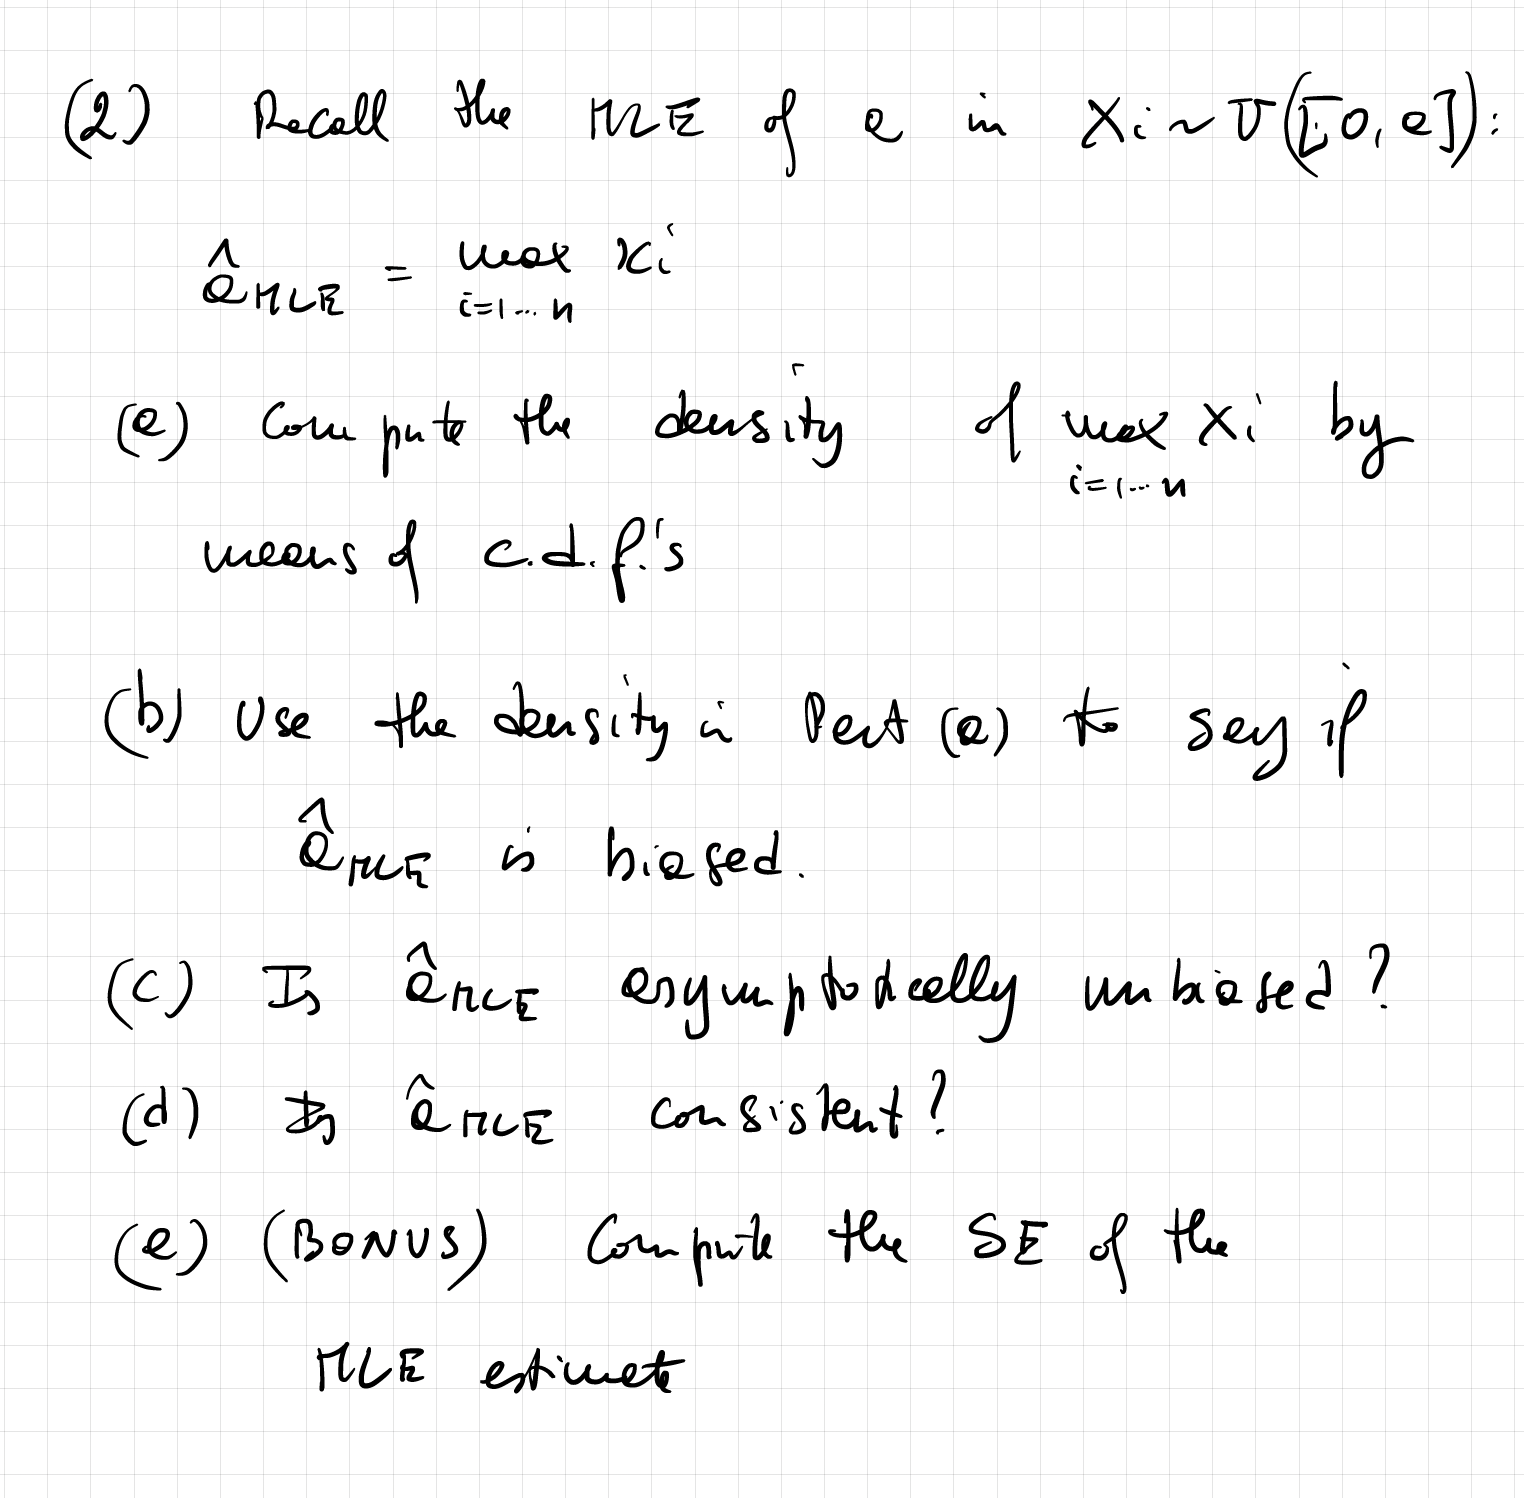 (2) Recall the MLE of a in Xi ~ U([0, a]):
â MLE = max xi
i=1...n
(a) Compute the density of max Xi by
i=1...n
means of c.d.f.'s
(b) Use the density in Part (a) to say if
â MLE is biased.
(c) Is â MLE asymptotically unbiased?
(d) Is â MLE consistent?
(e) (BONUS) Compute the SE of the
MLE estimate